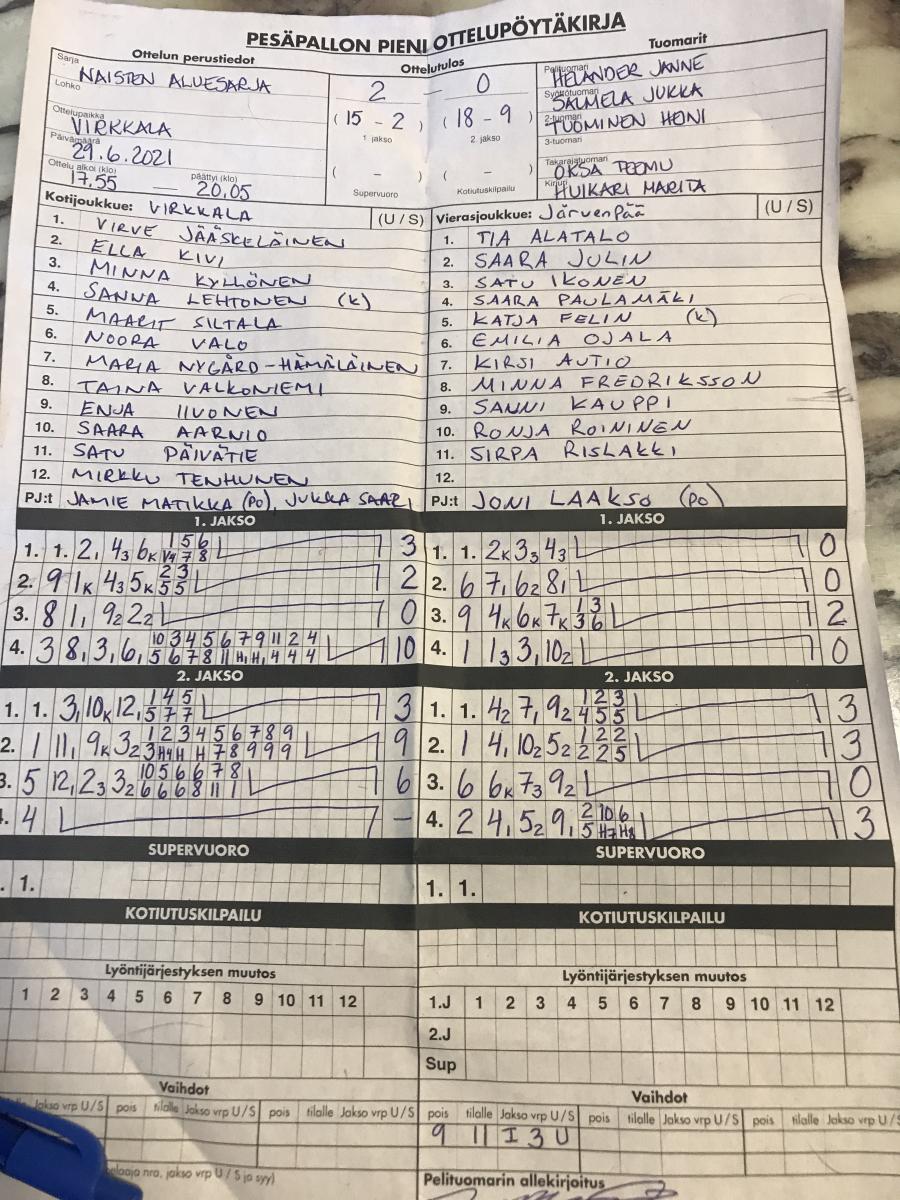 PESÄPALLON PIENI OTTELUPÖYTÄKIRJA
Ottelun perustiedot
Ottelutulos
Tuomarit
Sarja NAISTEN ALUESARJA
Lohko
Ottelupaikka VIRKKALA
Päivämäärä 29.6.2021
Ottelu alkoi (klo) 17.55 — päättyi (klo) 20.05
2 — 0
(15 - 2) (18 - 9)
1. jakso 2. jakso
( - ) ( - )
Supervuoro Kotiutuskilpailu
Pelituomari HELANDER JANNE
Syöttötuomari SALMELA JUKKA
2-tuomari TUOMINEN HENI
3-tuomari
Takarajatuomari OKSA TEEMU
Kirjuri HUIKARI MARITA
Kotijoukkue: VIRKKALA (U / S)
1. VIRVE JÄÄSKELÄINEN
2. ELLA KIVI
3. MINNA KYLLÖNEN
4. SANNA LEHTONEN (K)
5. MAARIT SILTALA
6. NOORA VALO
7. MARIA NYGÅRD-HÄMÄLÄINEN
8. TAINA VALKONIEMI
9. ENJA IIVONEN
10. SAARA AARNIO
11. SATU PÄIVÄTIE
12. MIRKKU TENHUNEN
PJ:t JAMIE MATIKKA (PO), JUKKA SAARI
Vierasjoukkue: Järvenpää (U / S)
1. TIA ALATALO
2. SAARA JULIN
3. SATU IKONEN
4. SAARA PAULAMÄKI
5. KATJA FELIN (K)
6. EMILIA OJALA
7. KIRSI AUTIO
8. MINNA FREDRIKSSON
9. SANNI KAUPPI
10. RONJA ROININEN
11. SIRPA RISLAKKI
12.
PJ:t JONI LAAKSO (PO)
1. JAKSO
1. 1. 2, 43 6K 1 5 6 7 8 3
2. 9 1K 43 5K 2 3 5 5 2
3. 8 1, 92 22 0
4. 3 8, 3, 6, 10 3 4 5 6 7 9 11 2 4 5 6 7 8 11 H, H, 4 4 4 10
1. JAKSO
1. 1. 2K 33 43 0
2. 6 7, 62 8, 0
3. 9 4K 6K 7K 1 3 3 6 2
4. 1 13 3, 102 0
2. JAKSO
1. 1. 3, 10K 12, 1 4 5 5 7 7 3
2. 1 11, 9K 32 1 2 3 4 5 6 7 8 9 3 H4 H H 7 8 9 9 9 9
3. 5 12, 23 32 10 5 6 6 7 8 6 6 6 8 11 1 6
4 -
2. JAKSO
1. 1. 42 7, 92 1 2 3 4 5 5 3
2. 1 4, 102 52 1 2 2 2 2 5 3
3. 6 6K 73 92 0
4. 2 4, 52 9, 2 10 6 5 H7 H8 3
SUPERVUORO
. 1.
SUPERVUORO
1. 1.
KOTIUTUSKILPAILU
KOTIUTUSKILPAILU
Lyöntijärjestyksen muutos
1 2 3 4 5 6 7 8 9 10 11 12
Lyöntijärjestyksen muutos
1.J 1 2 3 4 5 6 7 8 9 10 11 12
2.J
Sup
Vaihdot
Jakso vrp U / S pois tilalle Jakso vrp U / S pois tilalle Jakso vrp U / S
Vaihdot
pois tilalle Jakso vrp U / S pois tilalle Jakso vrp U / S pois tilalle Jakso vrp U / S
9 11 I 3 U
nro, jakso vrp U / S ja syy)
Pelituomarin allekirjoitus